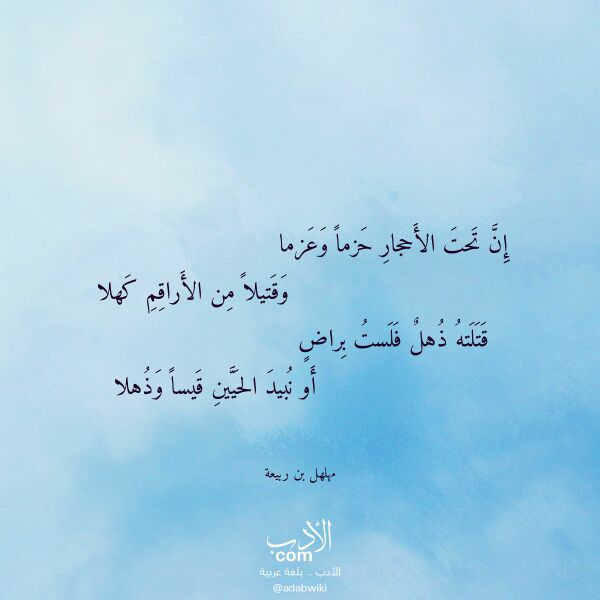 إِنَّ تَحتَ الأَحجارِ حَزماً وَعَزما
وَقَتيلاً مِن الأَراقِمِ كَهلا
قَتَلَتهُ ذُهلٌ فَلَستُ بِراضٍ
أَو نُبيدَ الحَيَّينِ قَيساً وَذُهلا
مهلهل بن ربيعة
الأدب
com
الأدب .. بلغة عربية
@adabwiki